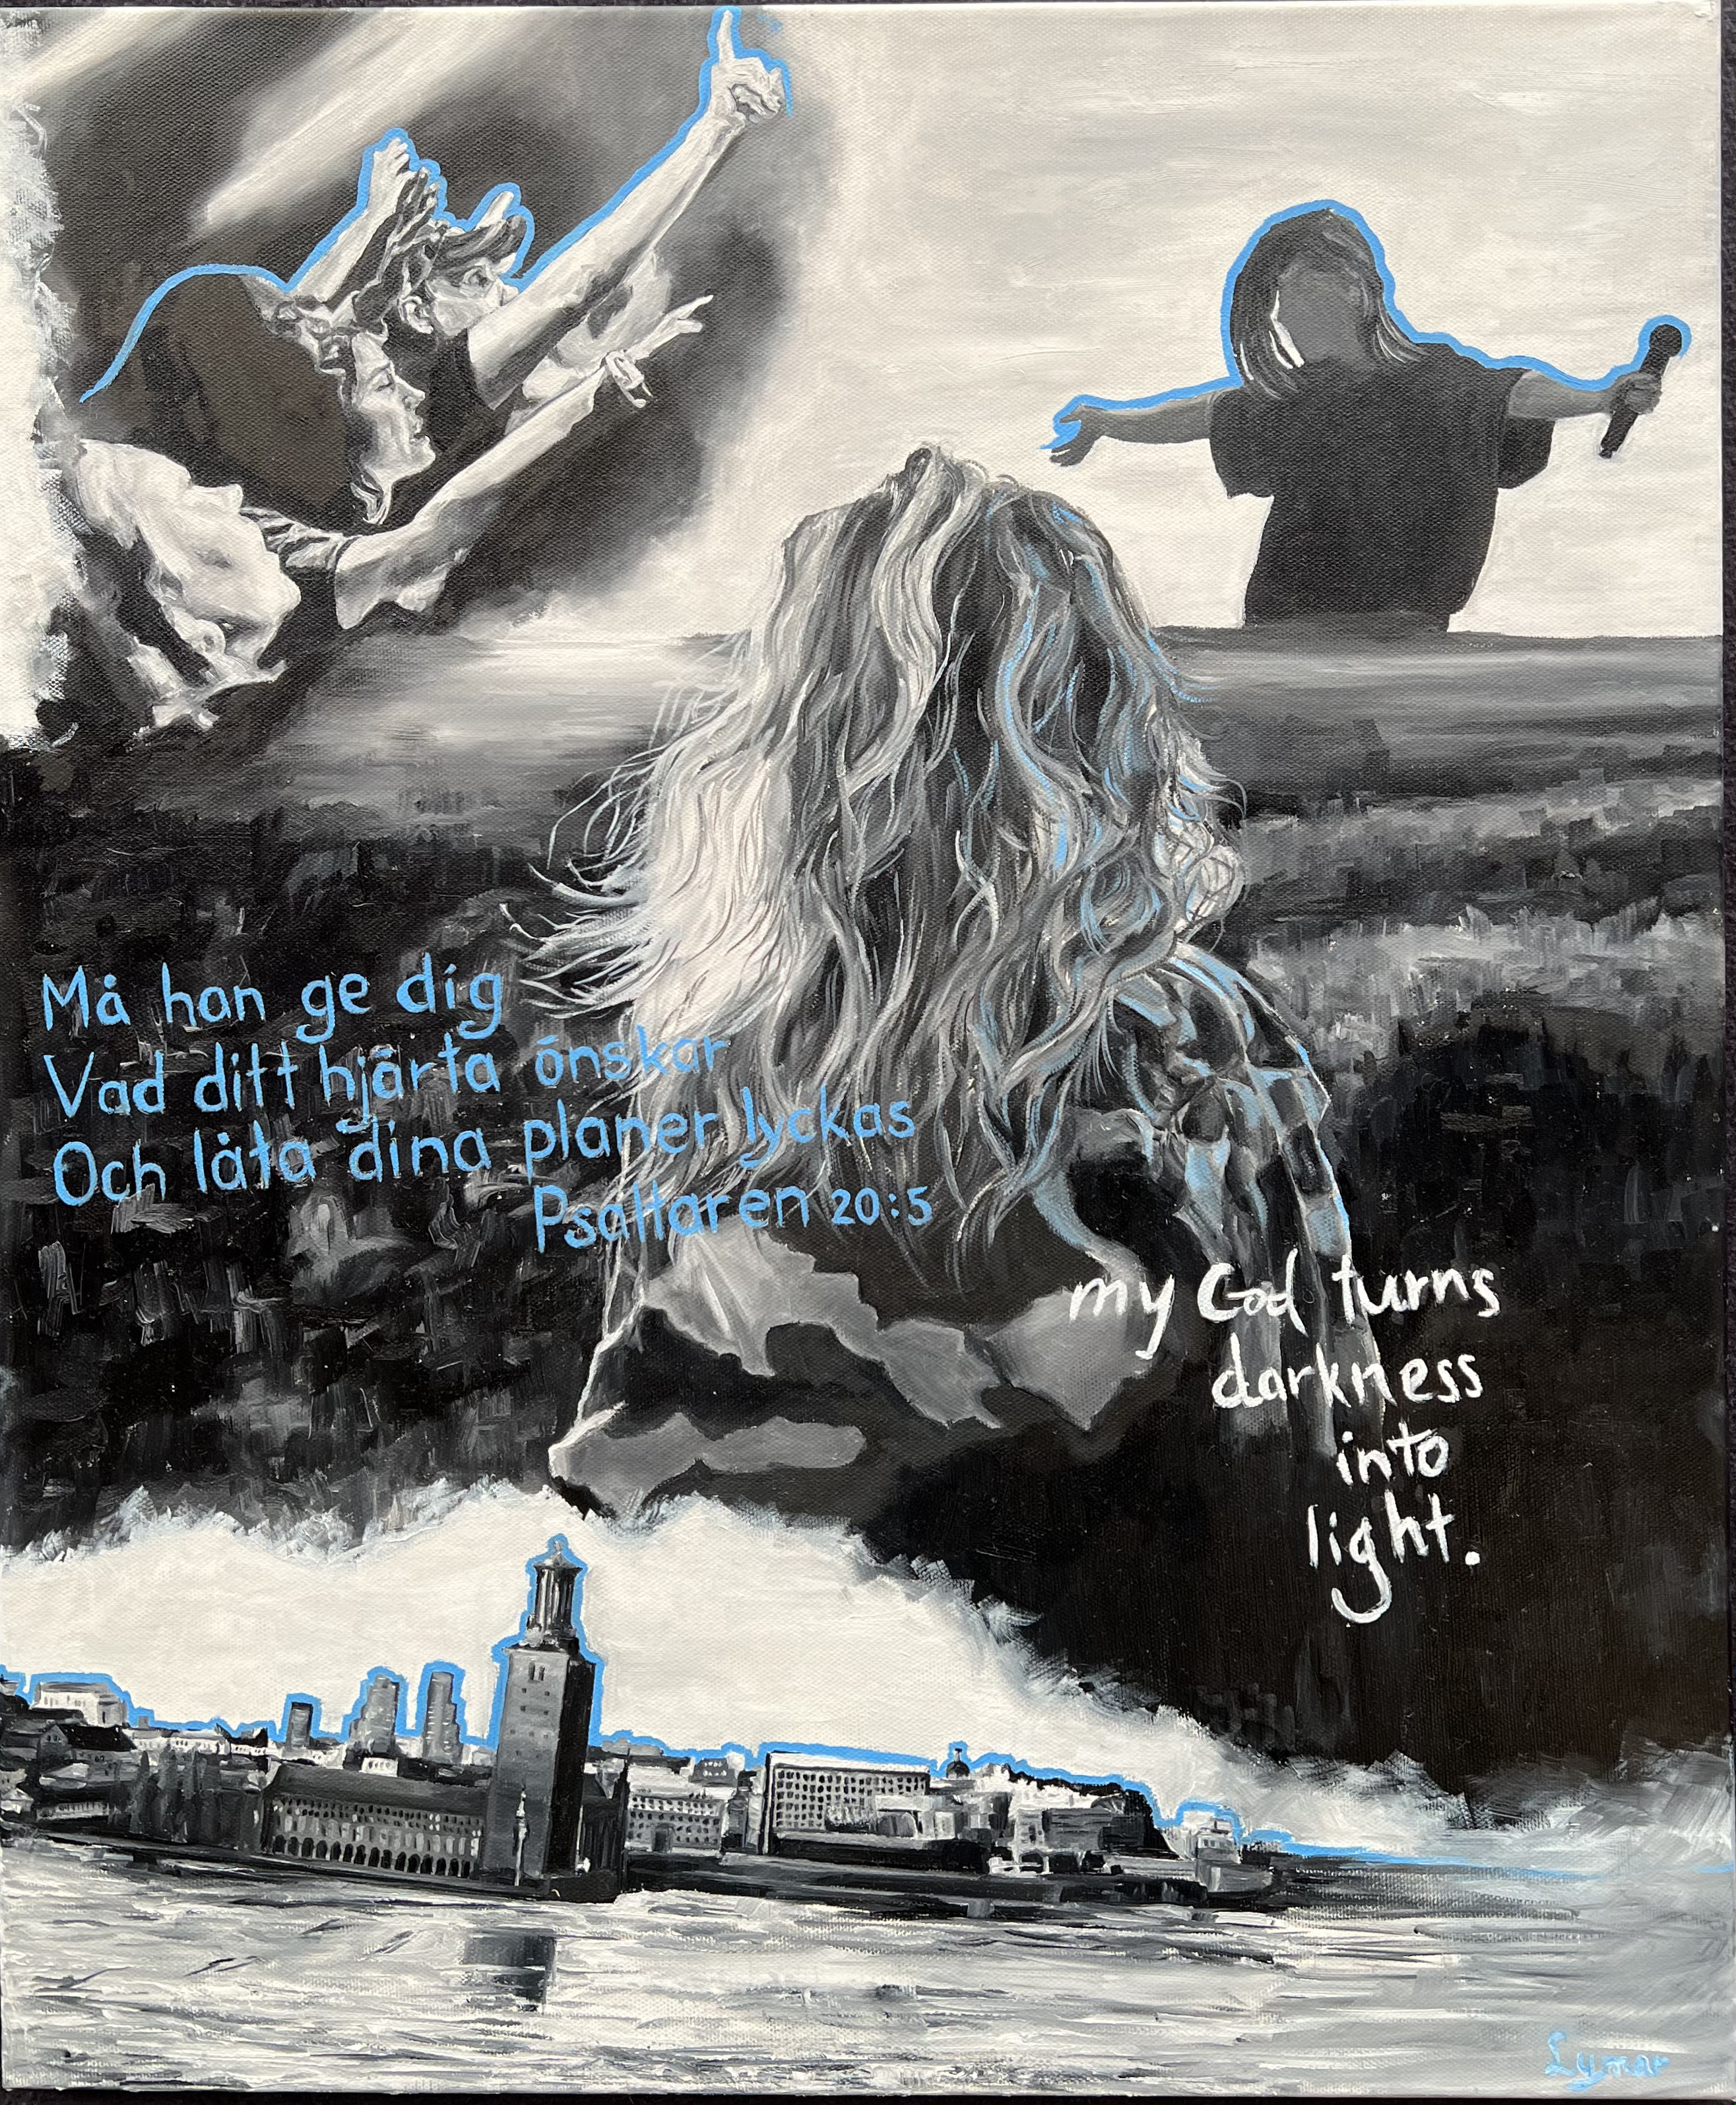 Må han ge dig
Vad ditt hjärta önskar
Och låta dina planer lyckas
Psaltaren 20:5
my God turns
darkness
into
light.
Lymar